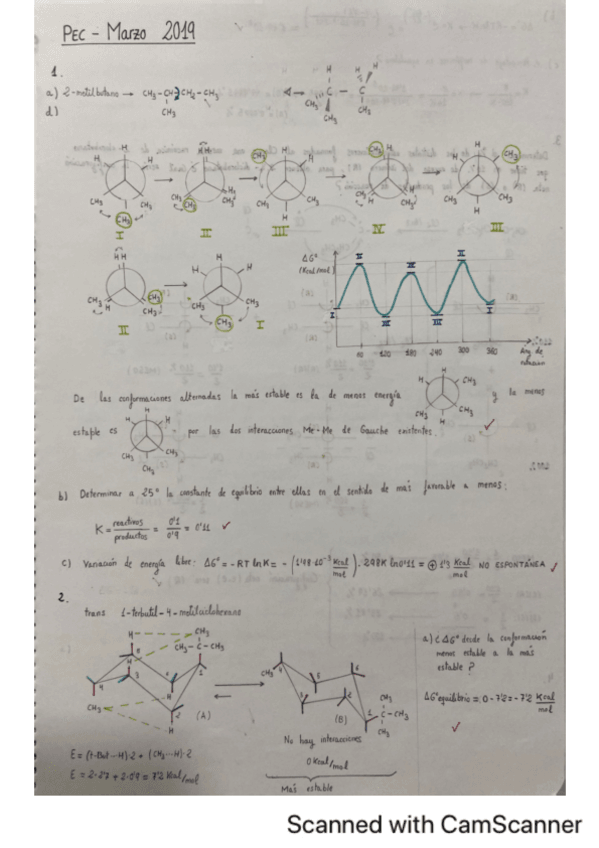 PEC - Marzo 2019
1.
a) 2-metilbutano → CH₃-CH-CH₂-CH₃
CH₃
d)
I II III IV III
ΔGº
(Kcal/mol)
60 120 180 240 300 360
Ang. de
rotación
II I
De las conformaciones alternadas la más estable es la de menos energía y la menos
estable es por las dos interacciones Me-Me de Gauche existentes. ✓
b) Determinar a 25º la constante de equilibrio entre ellas en el sentido de más favorable a menos:
K = reactivos/productos = 0'1/0'9 = 0'11 ✓
c) Variación de energía libre: ΔGº = -RT lnK = - (1'98·10⁻³ Kcal/mol) · 298K ln0'11 = ⊕ 1'3 Kcal/mol NO ESPONTÁNEA ✓
2.
trans 1-terbutil-4-metilciclohexano
a) ¿ΔGº desde la conformación
menos estable a la más
estable?
ΔGºequilibrio = 0-7'2 = -7'2 Kcal/mol
✓
(A) (B)
No hay interacciones
0 Kcal/mol
Más estable
E = (t-But-H)·2 + (CH₃-H)·2
E = 2·2'7 + 2·0'9 = 7'2 Kcal/mol
Scanned with CamScanner